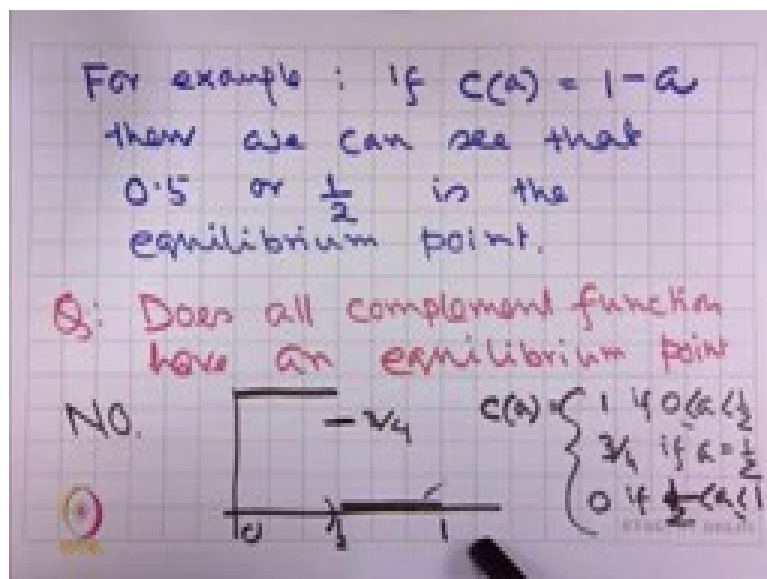 For example : if C(a) = 1 - a
then we can see that
0.5 or 1/2 is the
equilibrium point.
Q: Does all complement function
have an equilibrium point
NO.
3/4
C(a) = { 1 if 0 ≤ a < 1/2
3/4 if a = 1/2
0 if 1/2 < a ≤ 1
0 1/2 1